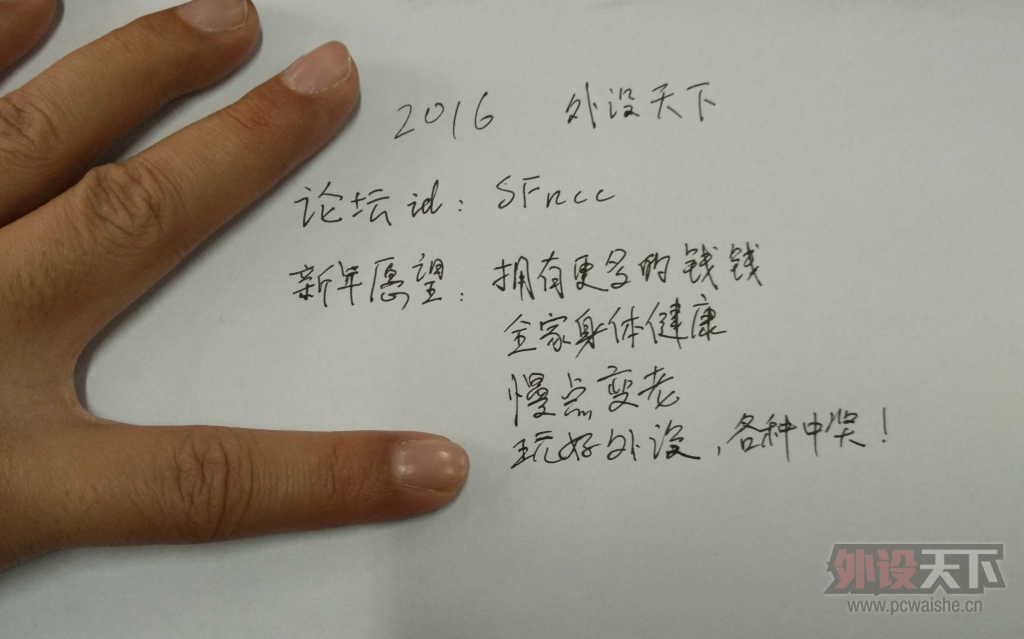 2016 外设天下
论坛id: SFncc
新年愿望: 拥有更多的钱钱
全家身体健康
慢点变老
玩好外设,各种中奖!
外设天下
www.pcwaishe.cn